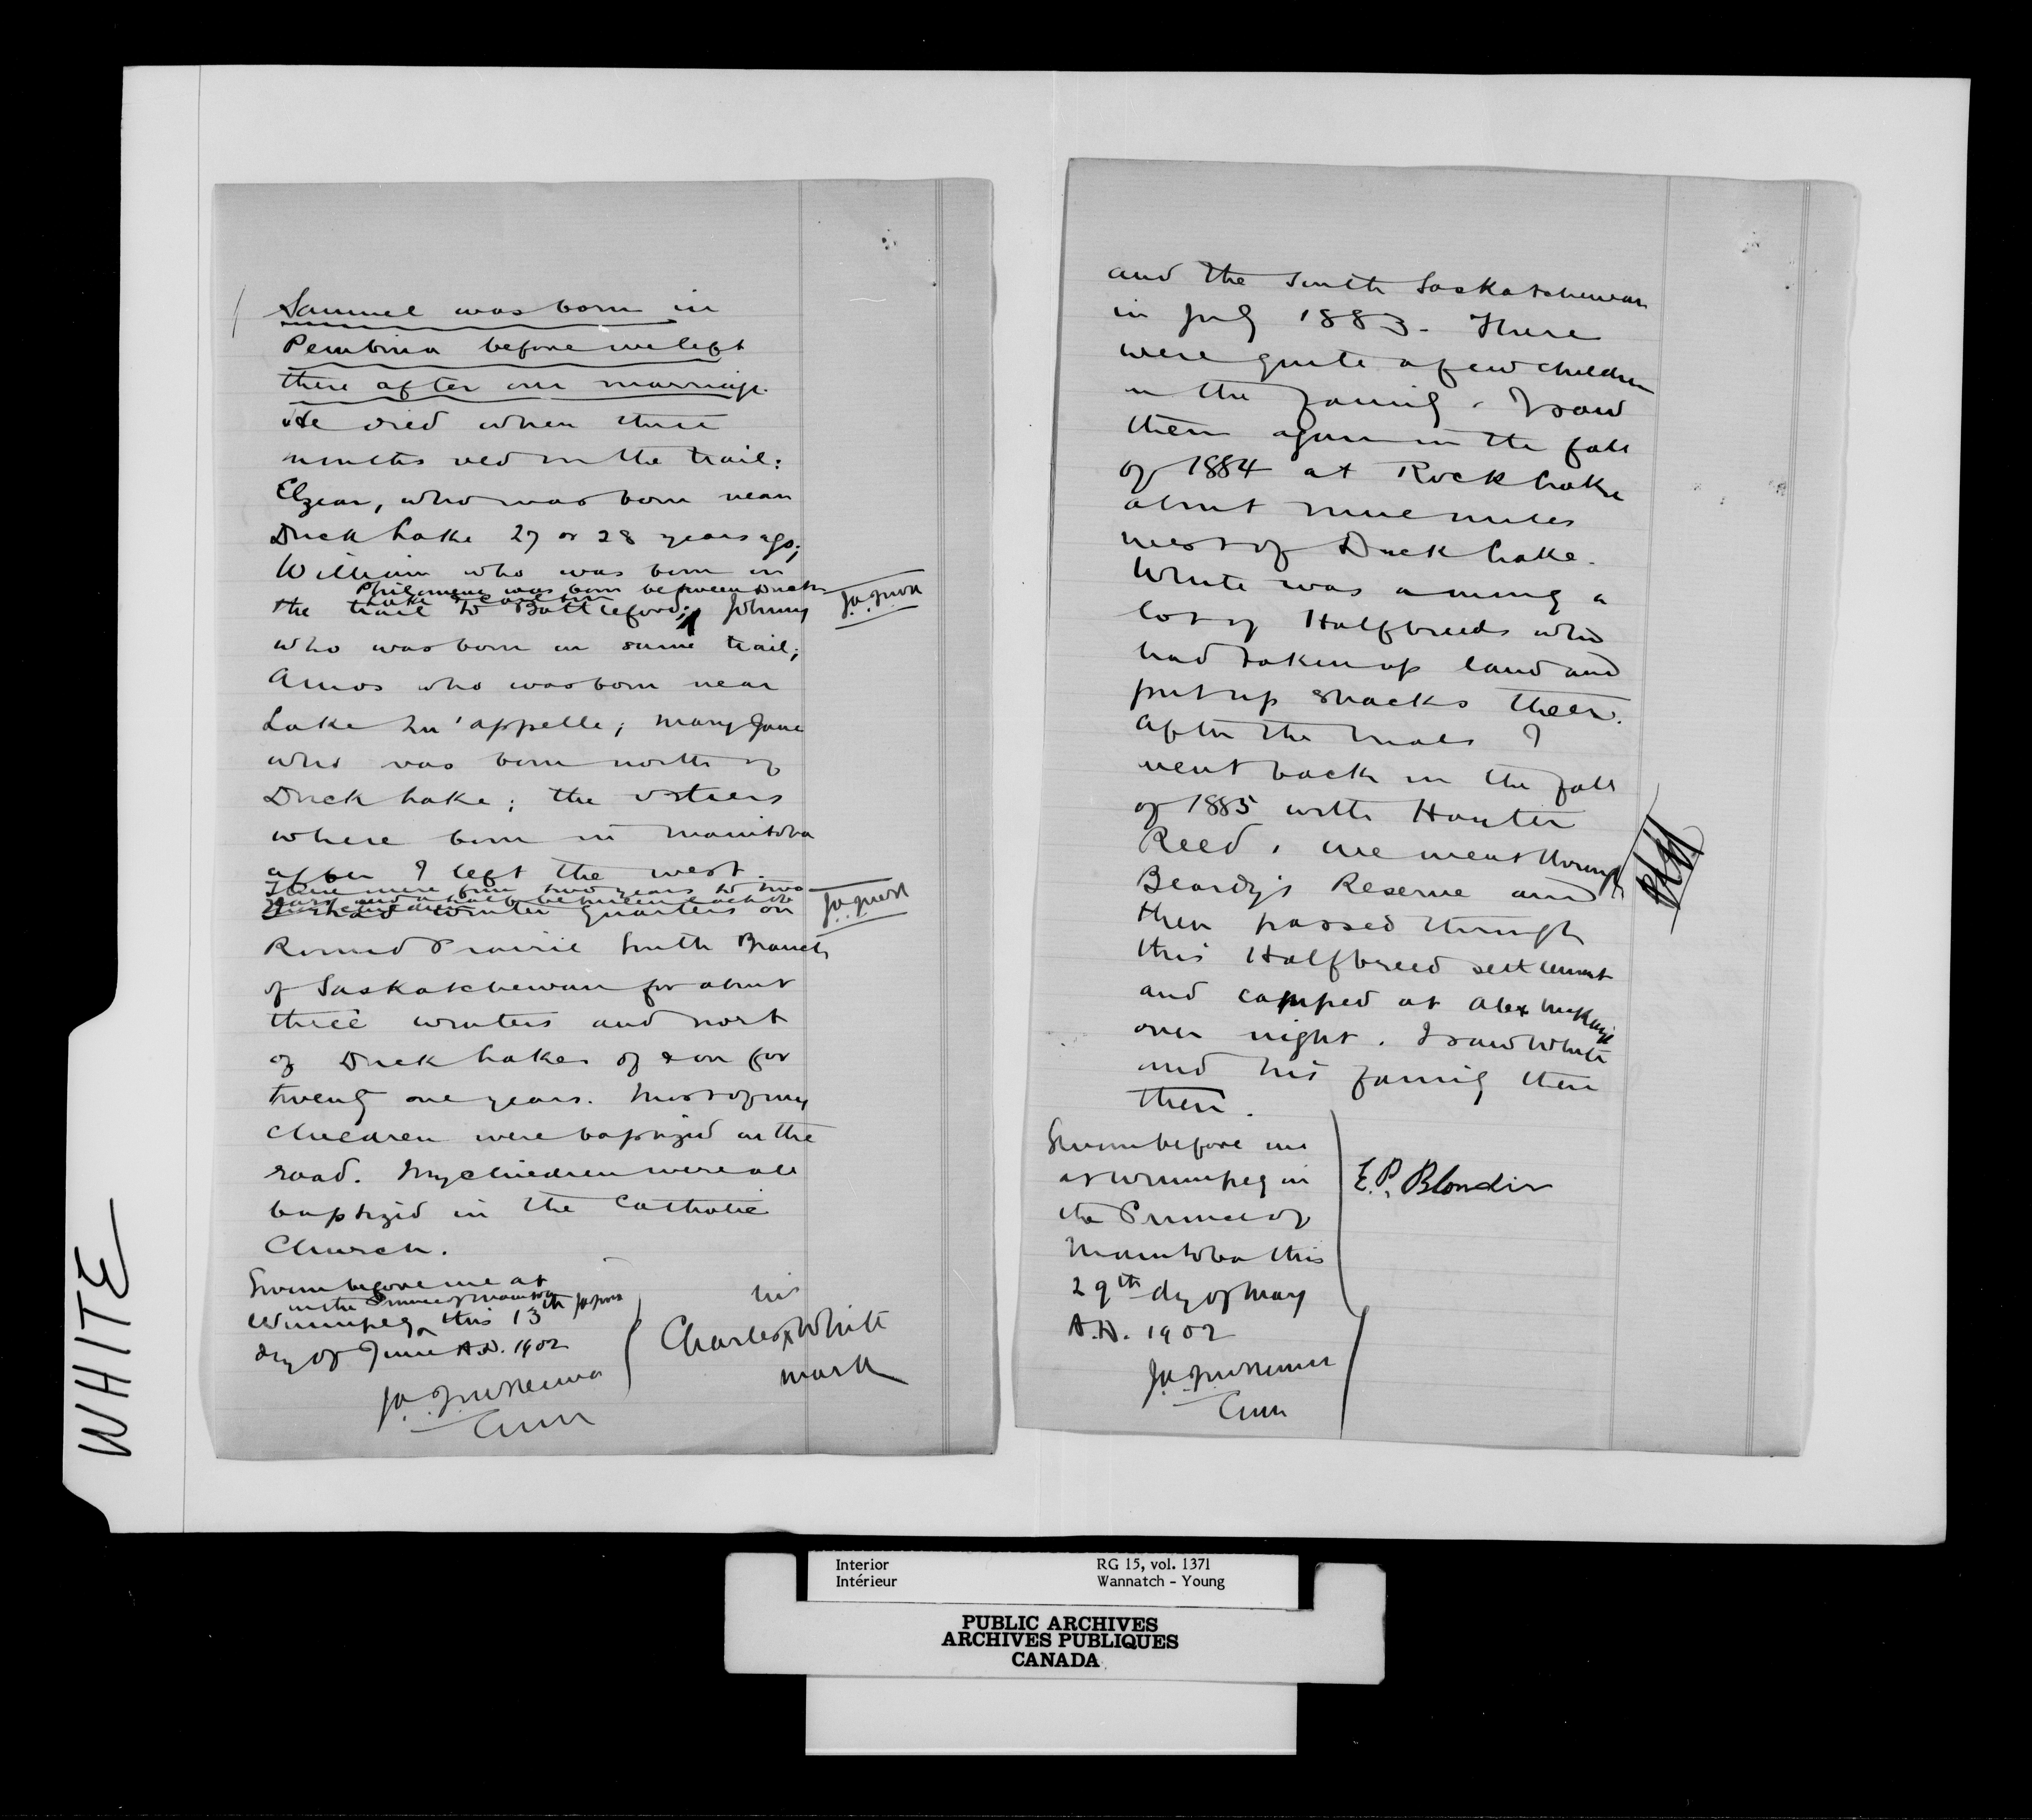 WHITE
Samuel was born in
Pembina before we left
there after our marriage.
He died when three
months old on the trail:
Elzear, who was born near
Duck Lake 27 or 28 years ago;
William who was born in
Philomene was born between Duck
Lake
the trail to Battleford; Johnny
who was born on same trail;
Amos who was born near
Lake Qu'appelle; Mary Jane
who was born north of
Duck Lake; the others
where born in Manitoba
after I left the west.
There were from two years to two
years and a half between each of
I had winter quarters on
Round Prairie South Branch
of Saskatchewan for about
three winters and north
of Duck Lake off & on for
twenty one years. Most of my
children were baptized on the
road. My children were all
baptized in the Catholic
Church.
Sworn before me at
in the Province of Manitoba
Winnipeg this 13th
day of June A.D. 1902
his
Charles x White
mark
and the South Saskatchewan
in July 1883. There
were quite a few children
in the family. I saw
them again in the fall
of 1884 at Rock Lake
about nine miles
west of Duck Lake.
White was among a
lot of Halfbreeds who
had taken up land and
put up shacks there.
After the trials I
went back in the fall
of 1885 with Hayter
Reed. We went through
Beardy's Reserve and
then passed through
this Halfbreed settlement
and camped at Alex McKay's
over night. I saw White
and his family then
there.
Sworn before me
at Winnipeg in
the Province of
Manitoba this
29th day of May
A.D. 1902
E.P. Blondin
Interior
Intérieur
RG 15, vol. 1371
Wannatch - Young
PUBLIC ARCHIVES
ARCHIVES PUBLIQUES
CANADA